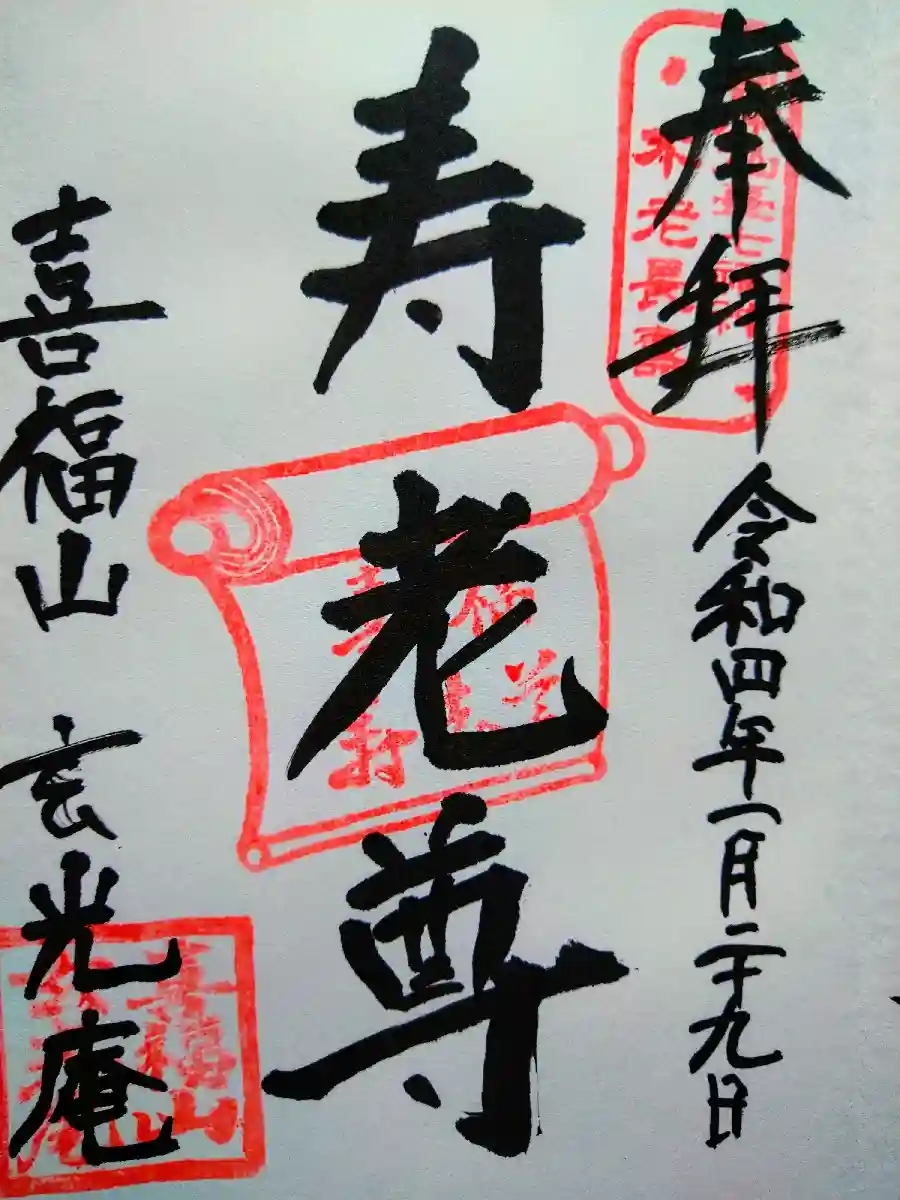 奉拝
令和四年一月二十九日
不老長寿
寿老尊
喜福山 玄光庵
喜福山